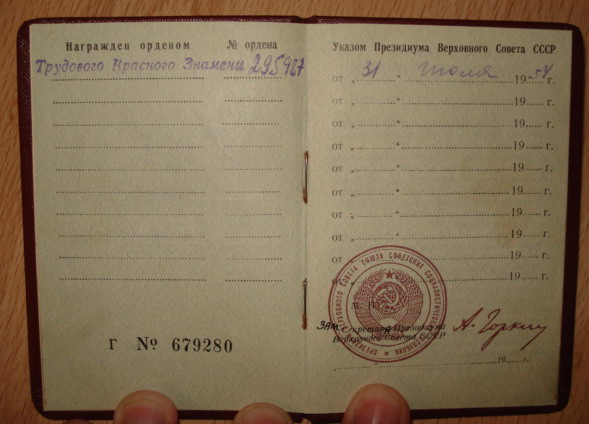 Награжден орденом № ордена
Трудового Красного Знамени 295987
Г № 679280
Указом Президиума Верховного Совета СССР
от „ 31 “ июля 1954 г.
от „ “ 19 г.
от „ “ 19 г.
от „ “ 19 г.
от „ “ 19 г.
от „ “ 19 г.
от „ “ 19 г.
от „ “ 19 г.
от „ “ 19 г.
от 19 г.
М. П.
Зам. Секретаря Президиума
Верховного Совета СССР
А. Горкин
19 г.